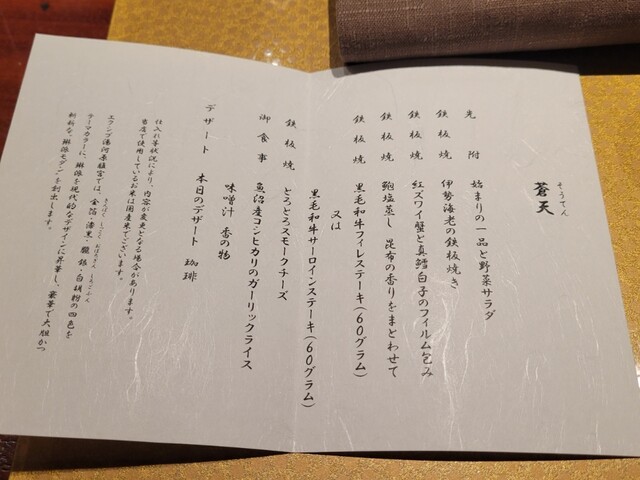 そうてん
蒼天
先附 始まりの一品と野菜サラダ
鉄板焼 伊勢海老の鉄板焼き
鉄板焼 紅ズワイ蟹と真鱈白子のフィルム包み
鉄板焼 鮑塩蒸し 昆布の香りをまとわせて
鉄板焼 黒毛和牛フィレステーキ(60グラム)
又は
黒毛和牛サーロインステーキ(60グラム)
鉄板焼 とろとろスモークチーズ
御食事 魚沼産コシヒカリのガーリックライス
味噌汁 香の物
デザート 本日のデザート 珈琲
仕入れ等状況により、内容が変更となる場合があります。
当店で使用しているお米は国産米でございます。
エクシブ湯河原離宮では、金箔・漆黒・朧銀・白胡粉の四色を
テーマカラーに、琳派を現代的なデザインに昇華し、豪華で大胆かつ
斬新な、琳派モダンを創出します。